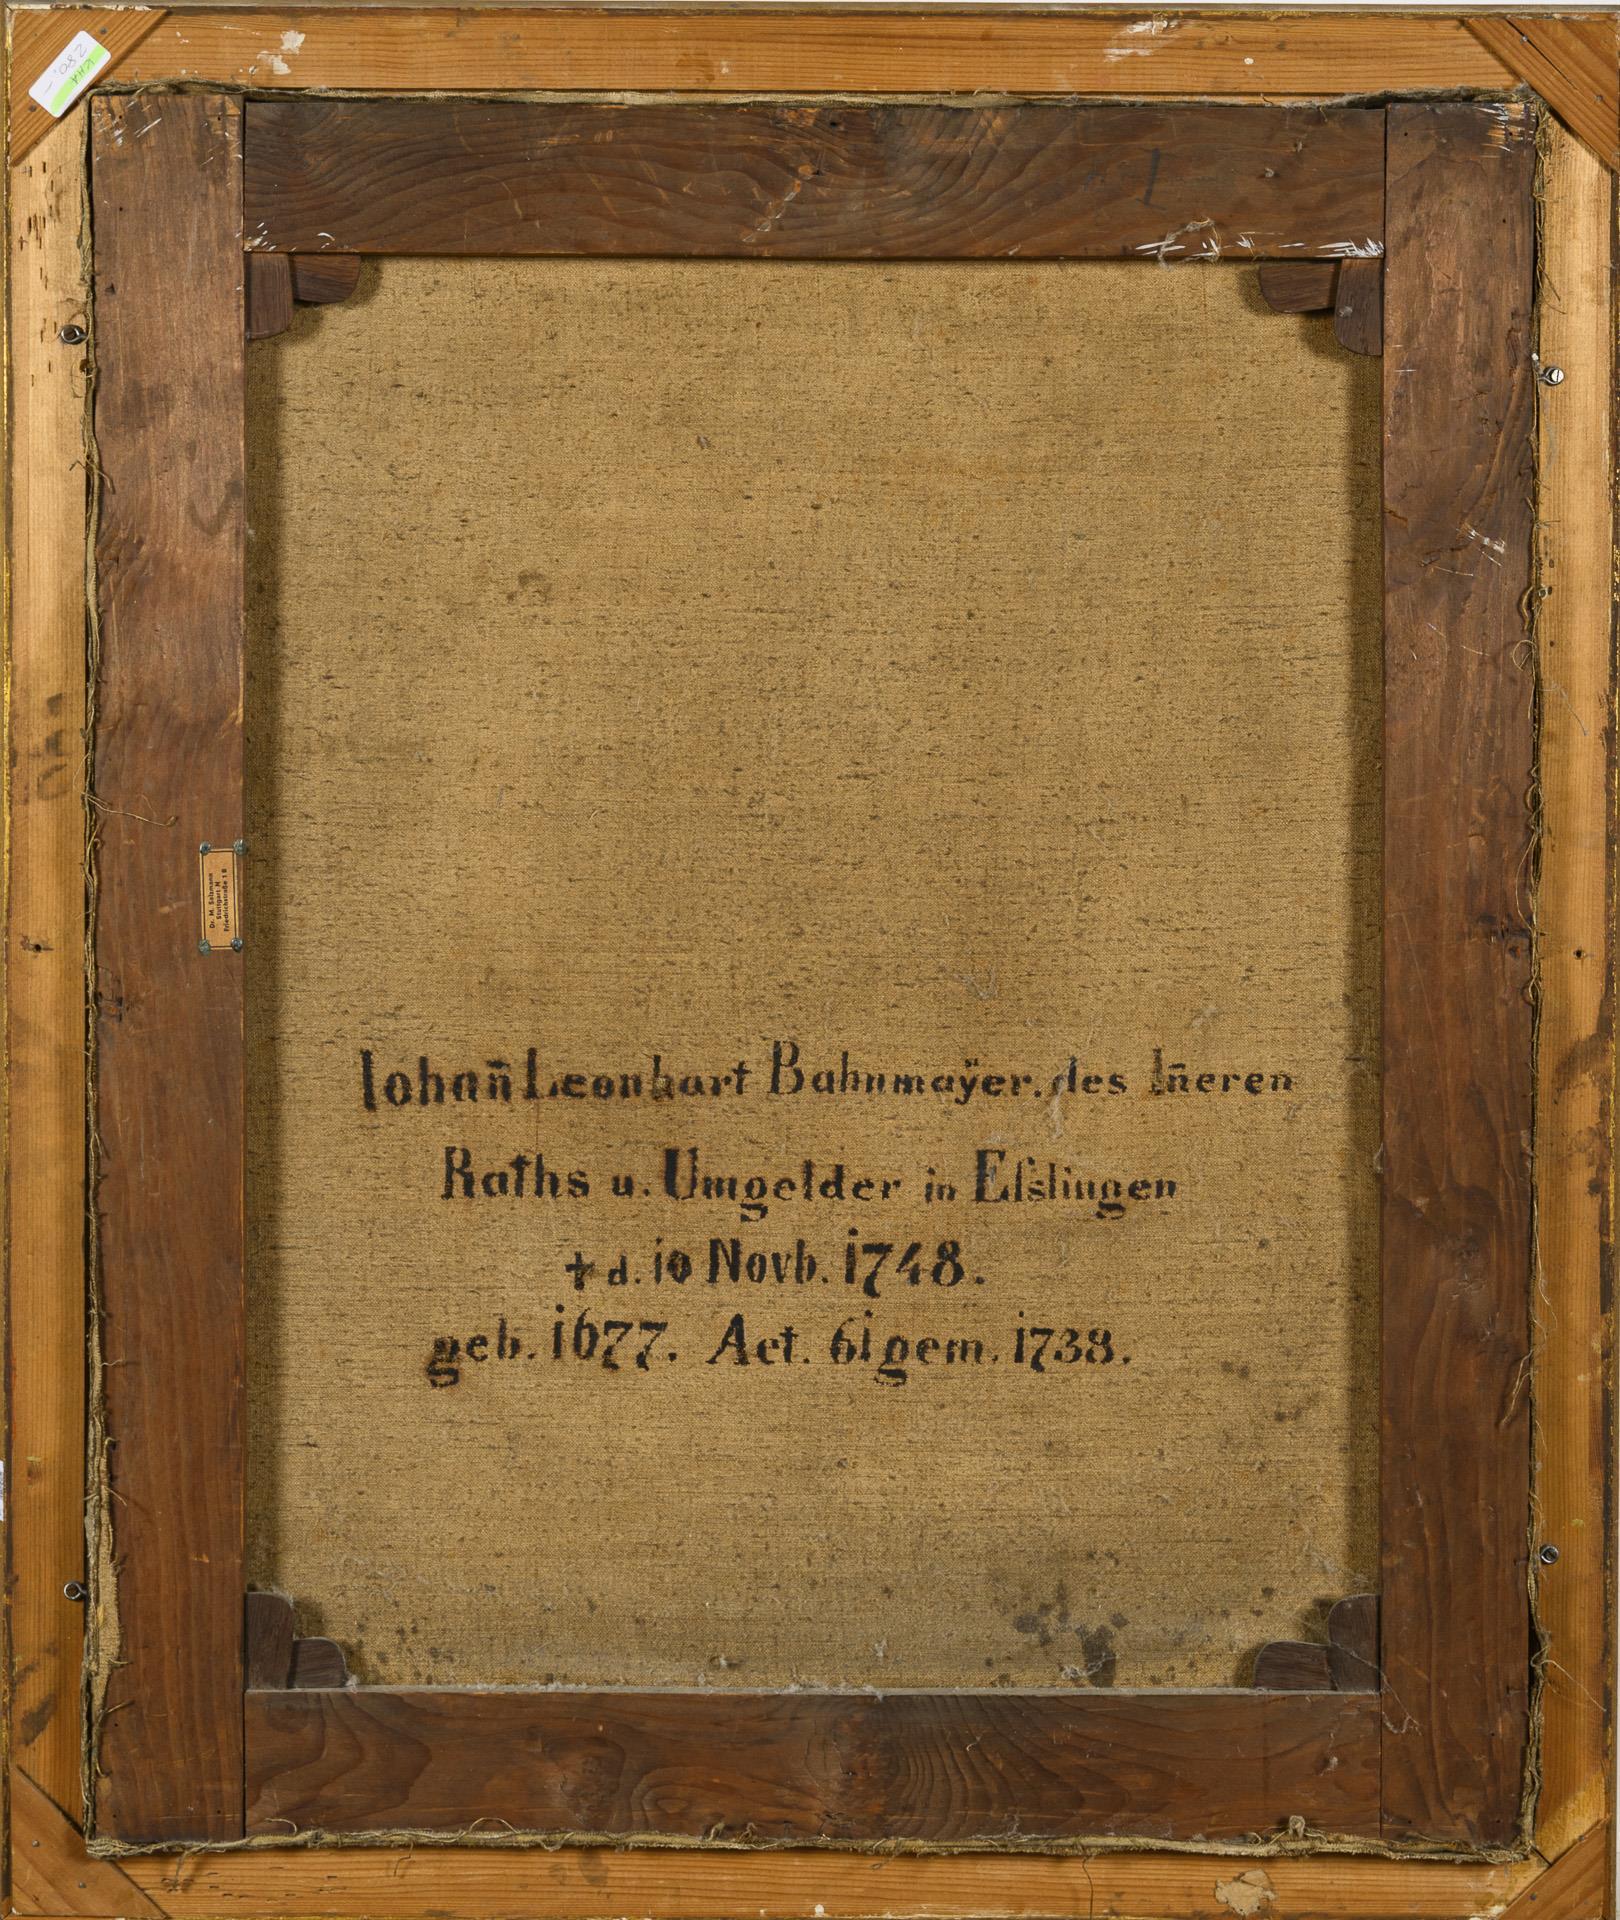 KHA
280.-
Dr. M. Salzmann
Stuttgart N
Friedrichstraße 1 B
Iohan̄ Leonhart Bahnmaÿer. des In̄eren
Raths u. Umgelder in Eſslingen
† d. 10 Novb. 1748.
geb. 1677. Aet. 61 gem. 1738.